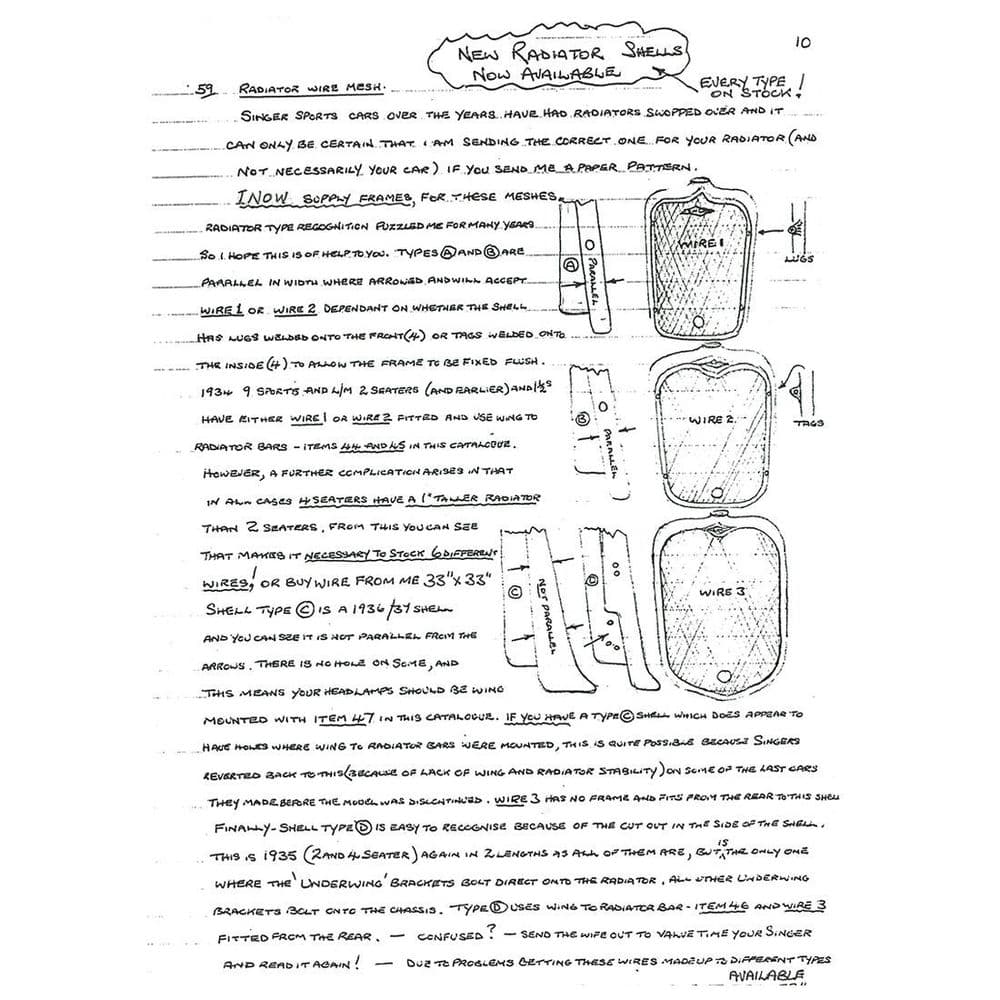 10
NEW RADIATOR SHELLS
NOW AVAILABLE
EVERY TYPE
ON STOCK!
59 RADIATOR WIRE MESH.
SINGER SPORTS CARS OVER THE YEARS HAVE HAD RADIATORS SWOPPED OVER AND IT
CAN ONLY BE CERTAIN THAT I AM SENDING THE CORRECT ONE FOR YOUR RADIATOR (AND
NOT NECESSARILY YOUR CAR) IF YOU SEND ME A PAPER PATTERN.
I NOW SUPPLY FRAMES, FOR THESE MESHES.
RADIATOR TYPE RECOGNITION PUZZLED ME FOR MANY YEARS
SO I HOPE THIS IS OF HELP TO YOU. TYPES A AND B ARE
PARALLEL IN WIDTH WHERE ARROWED AND WILL ACCEPT
WIRE 1 OR WIRE 2 DEPENDANT ON WHETHER THE SHELL
HAS LUGS WELDED ONTO THE FRONT (4) OR TAGS WELDED ONTO
THE INSIDE (4) TO ALLOW THE FRAME TO BE FIXED FLUSH.
1934 9 SPORTS AND L/M 2 SEATERS (AND EARLIER) AND 1½S
HAVE EITHER WIRE 1 OR WIRE 2 FITTED AND USE WING TO
RADIATOR BARS - ITEMS 44 AND 45 IN THIS CATALOGUE.
HOWEVER, A FURTHER COMPLICATION ARISES IN THAT
IN ALL CASES 4 SEATERS HAVE A 1" TALLER RADIATOR
THAN 2 SEATERS. FROM THIS YOU CAN SEE
THAT MAKES IT NECESSARY TO STOCK 6 DIFFERENT
WIRES! OR BUY WIRE FROM ME 33"X 33"
SHELL TYPE C IS A 1936/37 SHELL
AND YOU CAN SEE IT IS NOT PARALLEL FROM THE
ARROWS. THERE IS NO HOLE ON SOME, AND
THIS MEANS YOUR HEADLAMPS SHOULD BE WING
MOUNTED WITH ITEM 47 IN THIS CATALOGUE. IF YOU HAVE A TYPE C SHELL WHICH DOES APPEAR TO
HAVE HOLES WHERE WING TO RADIATOR BARS WERE MOUNTED, THIS IS QUITE POSSIBLE BECAUSE SINGERS
REVERTED BACK TO THIS (BECAUSE OF LACK OF WING AND RADIATOR STABILITY) ON SOME OF THE LAST CARS
THEY MADE BEFORE THE MODEL WAS DISCONTINUED. WIRE 3 HAS NO FRAME AND FITS FROM THE REAR TO THIS SHELL
FINALLY - SHELL TYPE D IS EASY TO RECOGNISE BECAUSE OF THE CUT OUT IN THE SIDE OF THE SHELL.
THIS IS 1935 (2 AND 4 SEATER) AGAIN IN 2 LENGTHS AS ALL OF THEM ARE, BUT IS THE ONLY ONE
WHERE THE 'UNDERWING' BRACKETS BOLT DIRECT ONTO THE RADIATOR. ALL OTHER UNDERWING
BRACKETS BOLT ONTO THE CHASSIS. TYPE D USES WING TO RADIATOR BAR - ITEM 46 AND WIRE 3
FITTED FROM THE REAR. — CONFUSED? — SEND THE WIFE OUT TO VALVE TIME YOUR SINGER
AND READ IT AGAIN! — DUE TO PROBLEMS GETTING THESE WIRES MADE UP TO DIFFERENT TYPES
AVAILABLE
A
PARALLEL
WIRE 1
LUGS
B
PARALLEL
WIRE 2
TAGS
C
NOT PARALLEL
D
WIRE 3